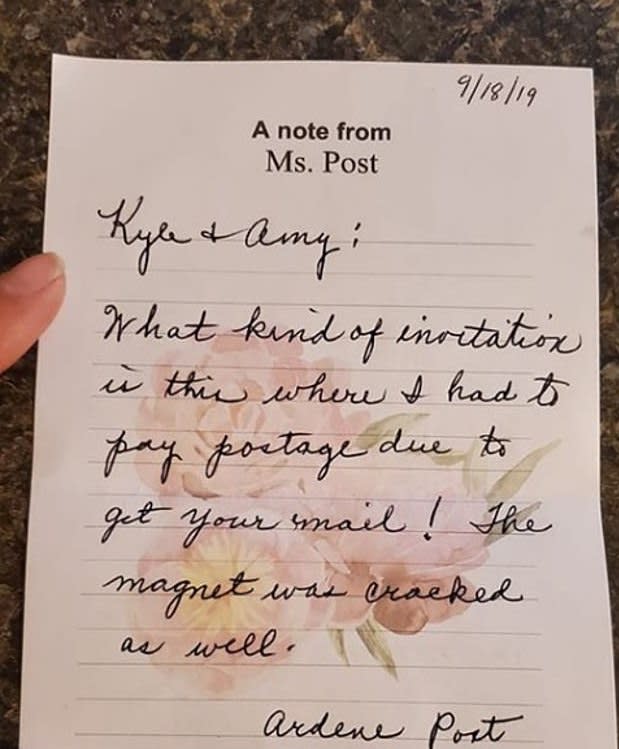 9/18/19
A note from
Ms. Post
Kyle & Amy:
What kind of invitation
is this where I had to
pay postage due to
get your mail! The
magnet was cracked
as well.
Ardene Post